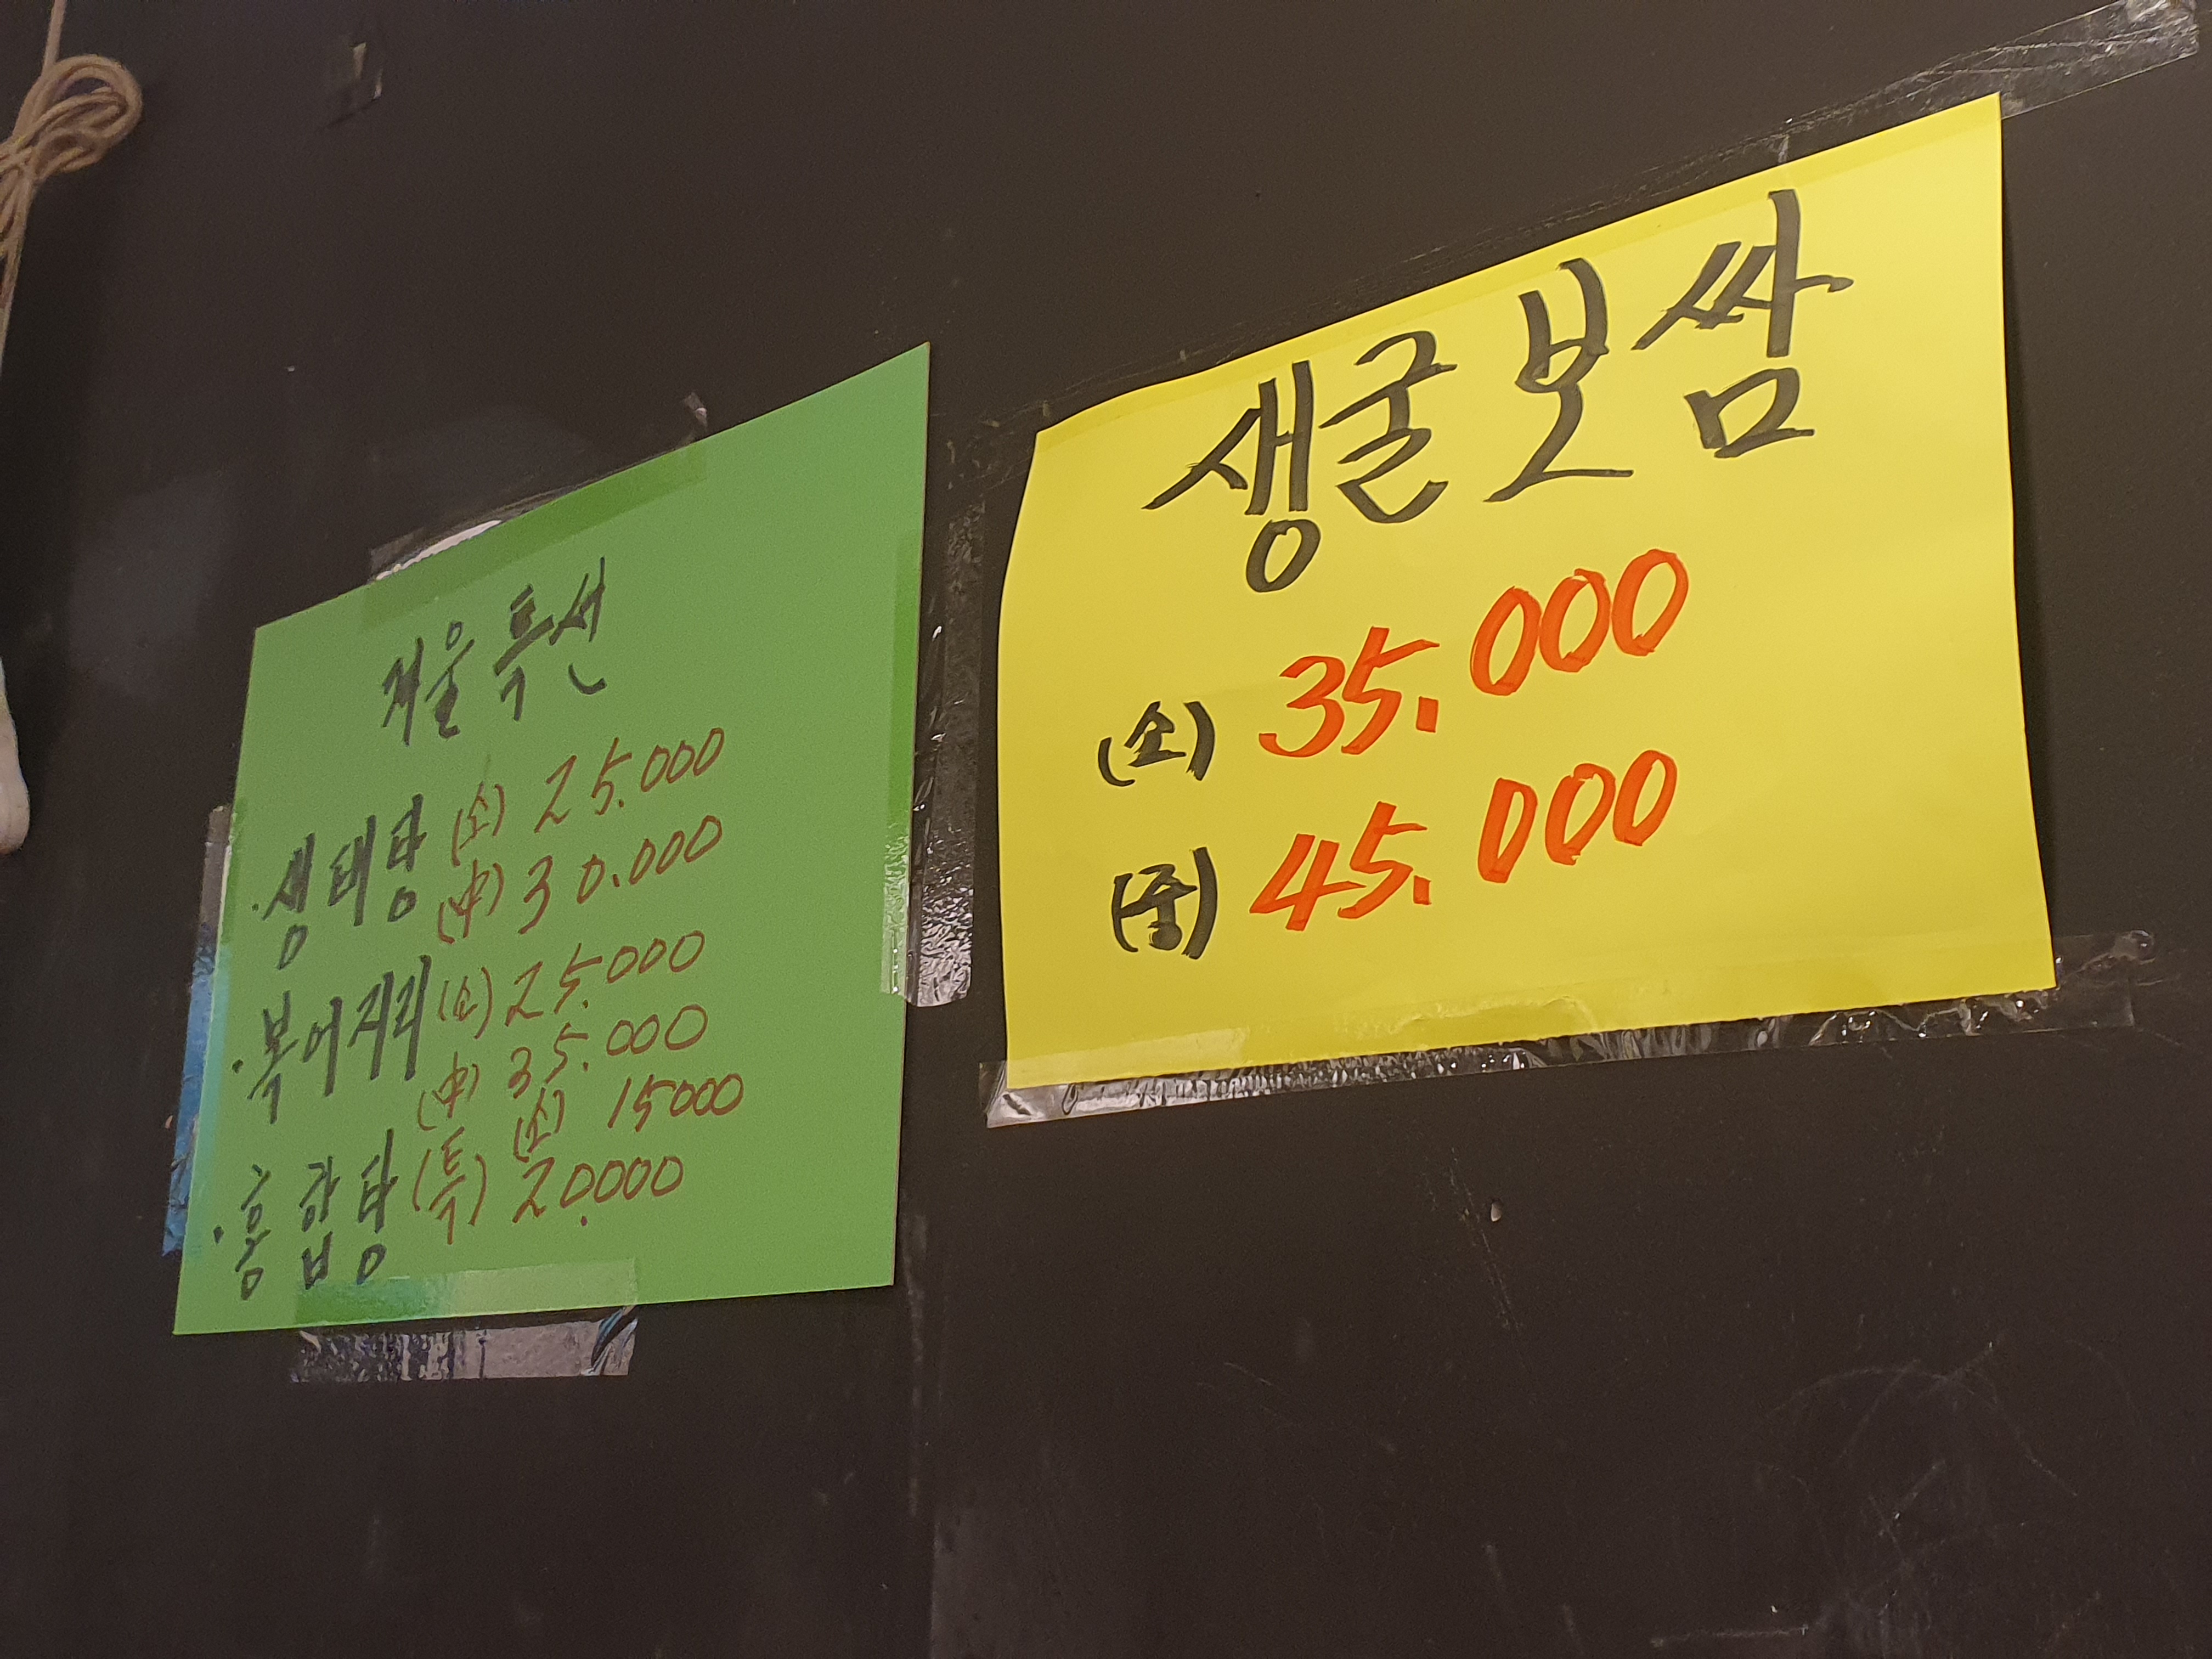 겨울 특선
· 생태탕 (소) 25.000
(中) 30.000
· 복어지리 (소) 25.000
(中) 35.000
(소) 15000
· 홍합탕 (특) 20.000
생굴보쌈
(소) 35.000
(중) 45.000